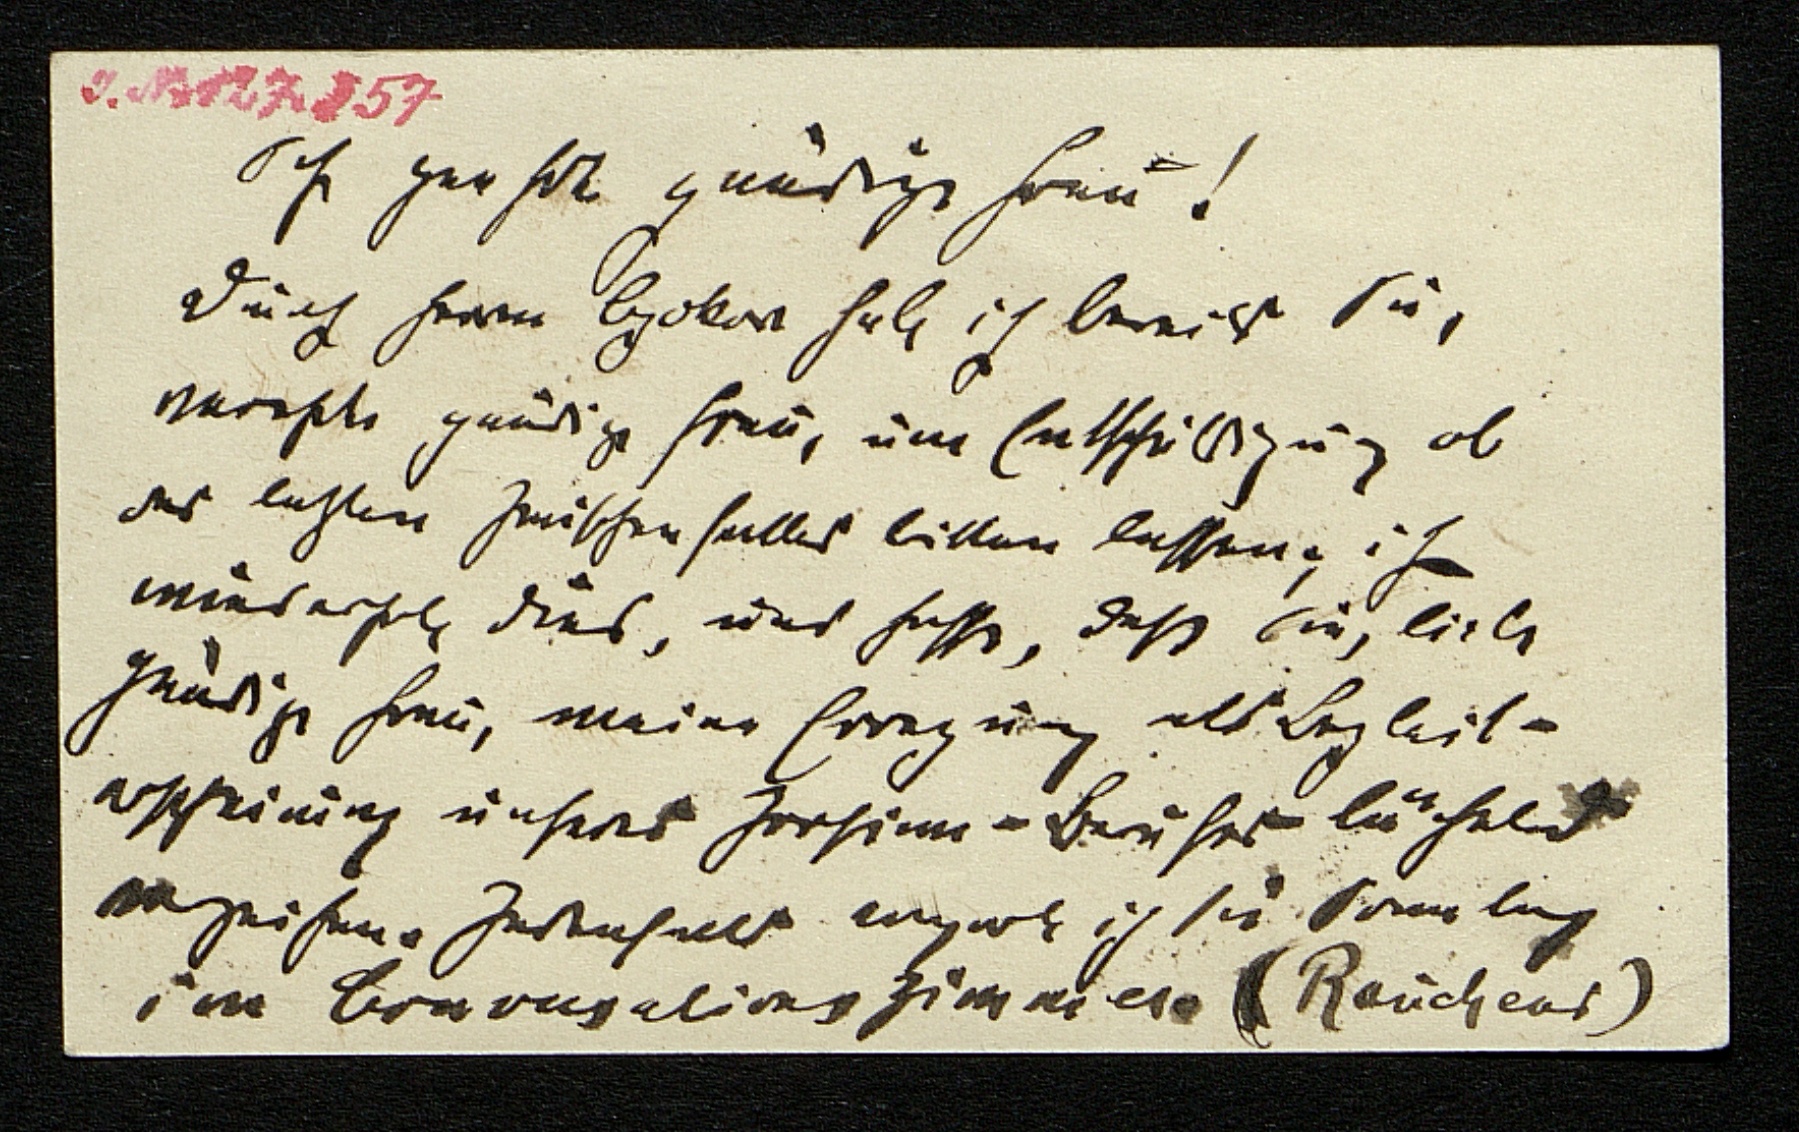 I. N. 127.857
Sehr verehrte gnädige Frau!
Durch Herrn habe ich bereits Sie,
verehrte gnädige Frau, um Entschuldigung ob
des letzten Zwischenfalles bitten lassen; ich
wiederhole dies, und hoffe, daß Sie, liebe
gnädige Frau, meine Erregung als Begleit-
erscheinung unseres Irrsinn-Berufes lächelnd
verzeihen. Jedenfalls erwarte ich Sie Samstag
im Conversationszimmer. (Rauchend)